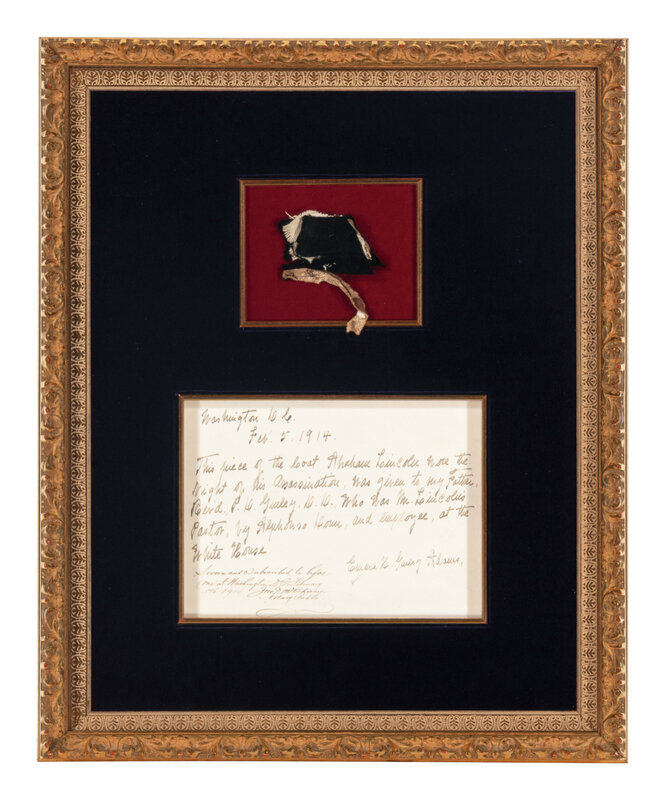 Washington D.C.
Feb. 5, 1914.
This piece of the Coat Abraham Lincoln wore the
Night of his Assassination, was given to my Father,
Revd. P. D. Gurley, D. D. Who was Mr. Lincoln's
Pastor, by Alphonso Donn, and employee, at the
White House
Emma K. Gurley Adams,
Sworn and subscribed to before
me at Washington D.C.
1914
Notary Public